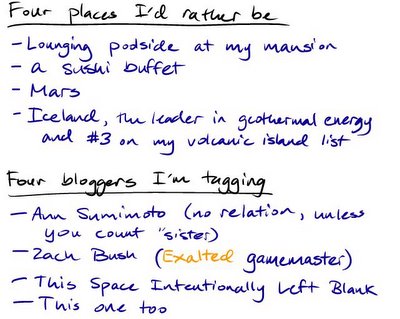 Four places I'd rather be
- Lounging podside at my mansion
- a sushi buffet
- Mars
- Iceland, the leader in geothermal energy
and #3 on my volcanic island list
Four bloggers I'm tagging
- Ann Sumimoto (no relation, unless
you count "sister)
- Zach Bush (Exalted gamemaster)
- This Space Intentionally Left Blank
- This one too